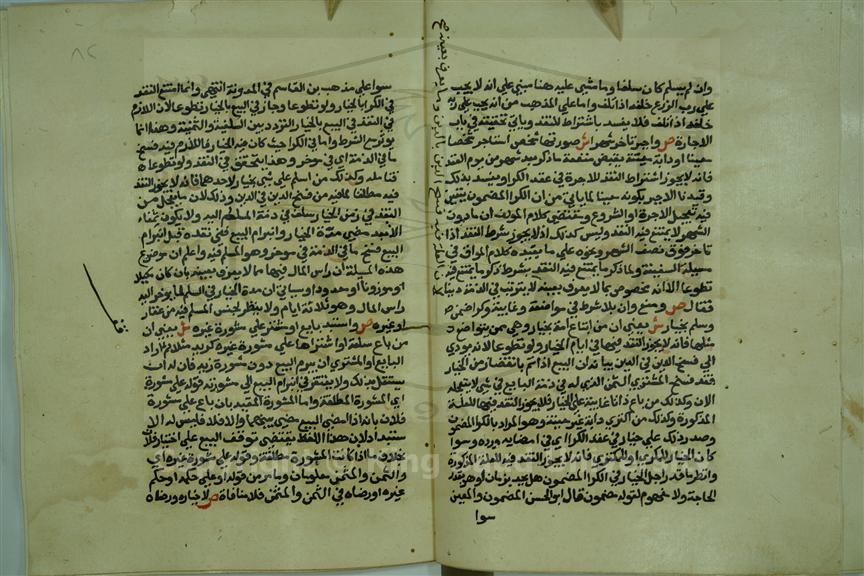 وان لم يسلم كان سلفا وما مشى عليه هنا مبني على انه لا يجب
على رب الزرع خلفه اذا تلف واما على المذهب من انه يجب على ربه
خلفه اذا تلف فلا يفسد باشتراط النقد وياتي تحقيقه في باب
الاجارة ص واجير تاخر شهرا ش صورتها شخص استاجر شخصا
معينا او دابة معينة يقبض منفعة ما ذكر بعد شهر من يوم العقد
فانه لا يجوز اشتراط النقد للاجرة في عقد الكرا ويفسد بذلك
وقيدنا الاجير بكونه معينا لما ياتي من ان الكرا المضمون يتعين
فيه تعجيل الاجرة او الشروع ومقتضى كلام المولف ان ما دون
الشهر لا يمتنع فيه النقد وليس كذلك اذ لا يجوز شرط النقد اذا
تاخر فوق نصف الشهر ونحوه على ما يفيده كلام المواق في
مسيلة السفينة ولما ذكر ما يمتنع فيه النقد بشرط ذكر ما يمتنع فيه
تطوعا الا انه مخصوص بما لا يعرف بعينه لا يترتب في الذمة دينا
فقال ص ومنع وان بلا شرط في مواضعة وغايبة وكرا ضمن
وسلم بخيار ش يعني ان من ابتاع امة بخيار وهي ممن يتواضع
مثلها فانه لا يجوز النقد فيها في ايام الخيار ولو تطوعا لانه مودي
الى فسخ الدين في الدين بيانه ان البيع اذا تم بانقضا زمن الخيار
فقد فسخ المشتري الثمن الذي له في ذمة البايع في شي لا يتعجله
الان وكذلك من باع ذاتا غايبة على الخيار فلا يجوز النقد فيها للعلة
المذكورة وكذلك من اكترى دابة غير معينة وهو المراد بالكرا المضمون
وصدر ذلك على خيار في عقد الكرا اي في امضايه ورده وسوا
كان الخيار للمكري او المكتري فانه لا يجوز النقد فيه للعلة المذكورة
وانظر ما قدر اجل الخيار في الكرا المضمون هل يحد بزمان او هو بقدر
الحاجة ولا مفهوم لقوله مضمون قال ابو الحسن المضمون والمعين
سوا
سوا على مذهب بن القاسم في المدونة انتهى وانما امتنع النقد
في الكرا بالخيار ولو تطوعا وجاز في البيع بالخيار تطوعا لان اللازم
في النقد في البيع بالخيار التردد بين السلفية والثمنية وهذا انما
يوثر مع الشرط واما في الكرا حيث كان فيه الخيار فاللازم فيه فسخ
ما في الذمة اي في موخر وهذا يتحقق في النقد ولو تطوعا
فتامله وكذلك من اسلم على شي بخيار لاحدهما فانه لا يجوز النقد
فيه مطلقا لما فيه من فسخ الدين في الدين وذلك لان ما يعجل من
النقد في زمن الخيار سلف في ذمة المسلم اليه ولا يكون ثمنا
الا بعد مضي مدة الخيار وانبرام البيع فمتى نقده قبل انبرام
البيع فسخ ما في الذمة في موخر وهو المسلم فيه واعلم ان موضوع
هذه المسيلة ان راس المال فيها مما لا يعرف بعينه بان كان مكيلا
او موزونا او معدودا وسياتي ان مدة الخيار في السلم لما يوخر اليه
راس المال وهو ثلاثة ايام ولا ينظر لجنس المسلم فيه من عقار
او غيره ص واستبد بايع او مشتر على مشورة غيره ش يعني ان
من باع سلعة او اشتراها على مشورة غيره كزيد مثلا ثم اراد
البايع او المشتري ان يبرم البيع دون مشورة زيد فان له ان
يستقل بذلك ولا يفتقر في انبرام البيع الى مشورة زيد قوله على مشورة
اي المشورة المطلقة واما المشورة المقيدة بان باع على مشورة
فلان بانه اذا امضى البيع مضى بينهما والا فلا فليس له الا
ستبداد لان هذا اللفظ يقتضي توقف البيع على اختيار فلان
بخلاف ما اذا كانت المشورة مطلقة وقوله على مشورة غيره اي
والثمن والمثمن معلومان وما مر من قوله او على حكمه او حكم
غيره او رضاه في الثمن والمثمن فلا منافاة ص لا خياره ورضاه